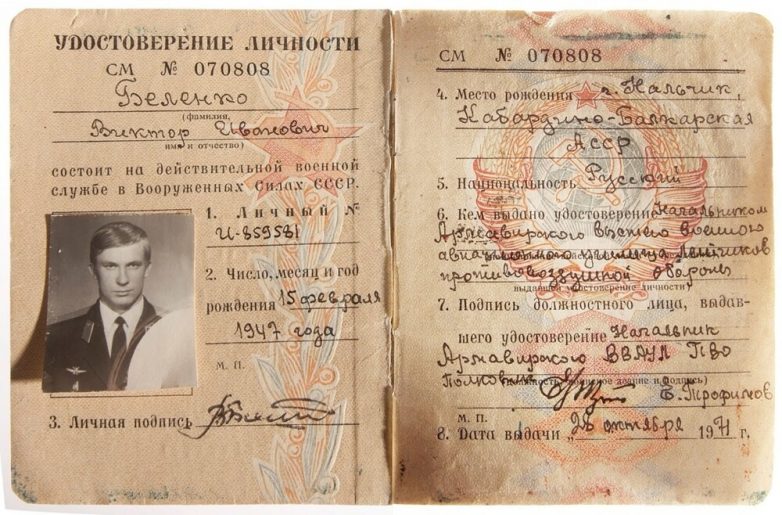 УДОСТОВЕРЕНИЕ ЛИЧНОСТИ
СМ № 070808
Беленко
(фамилия,
Виктор Иванович
имя и отчество)
состоит на действительной военной
службе в Вооруженных Силах СССР.
1. Личный №
И-859581
2. Число, месяц и год
рождения 15 февраля
1947 года
М. П.
3. Личная подпись
СМ № 070808
4. Место рождения г. Нальчик,
Кабардино-Балкарская
АССР
5. Национальность Русский
6. Кем выдано удостоверение Начальником
Армавирского высшего военного
авиационного училища летчиков
противовоздушной обороны
выдавшей удостоверение личности)
7. Подпись должностного лица, выдав-
шего удостоверение Начальник
Армавирского ВВАУЛ ПВО
Полковник
(должность, воинское звание и подпись)
Е. Трофимов
М. П.
8. Дата выдачи „26 октября 1971 г.